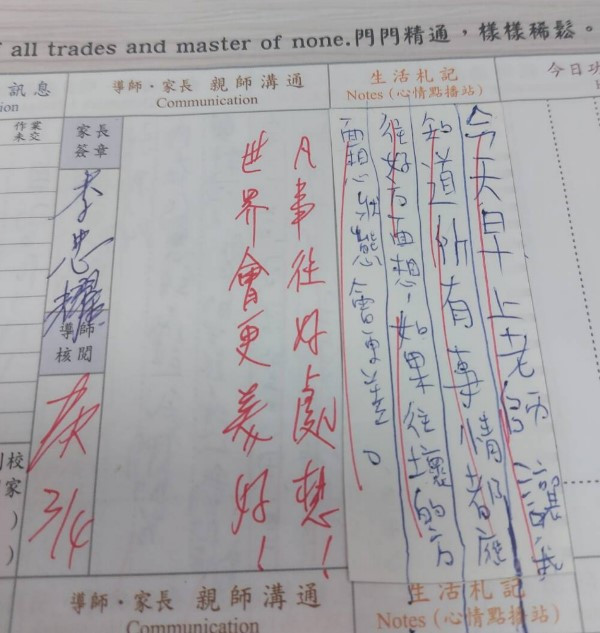 all trades and master of none.門門精通，樣樣稀鬆。
今日功
生活札記
Notes (心情點播站)
今天早上老師讓我
知道所有事情都應
往好方面想，如果往壞的方
面想狀態會更差。
導師・家長 親師溝通
Communication
凡事往好處想！
世界會更美好！
訊息
作業
未交
家長
簽章
導師
核閱
3/4
校
家
生活札記
Notes (心情點播站)
導師・家長 親師溝通
Communication